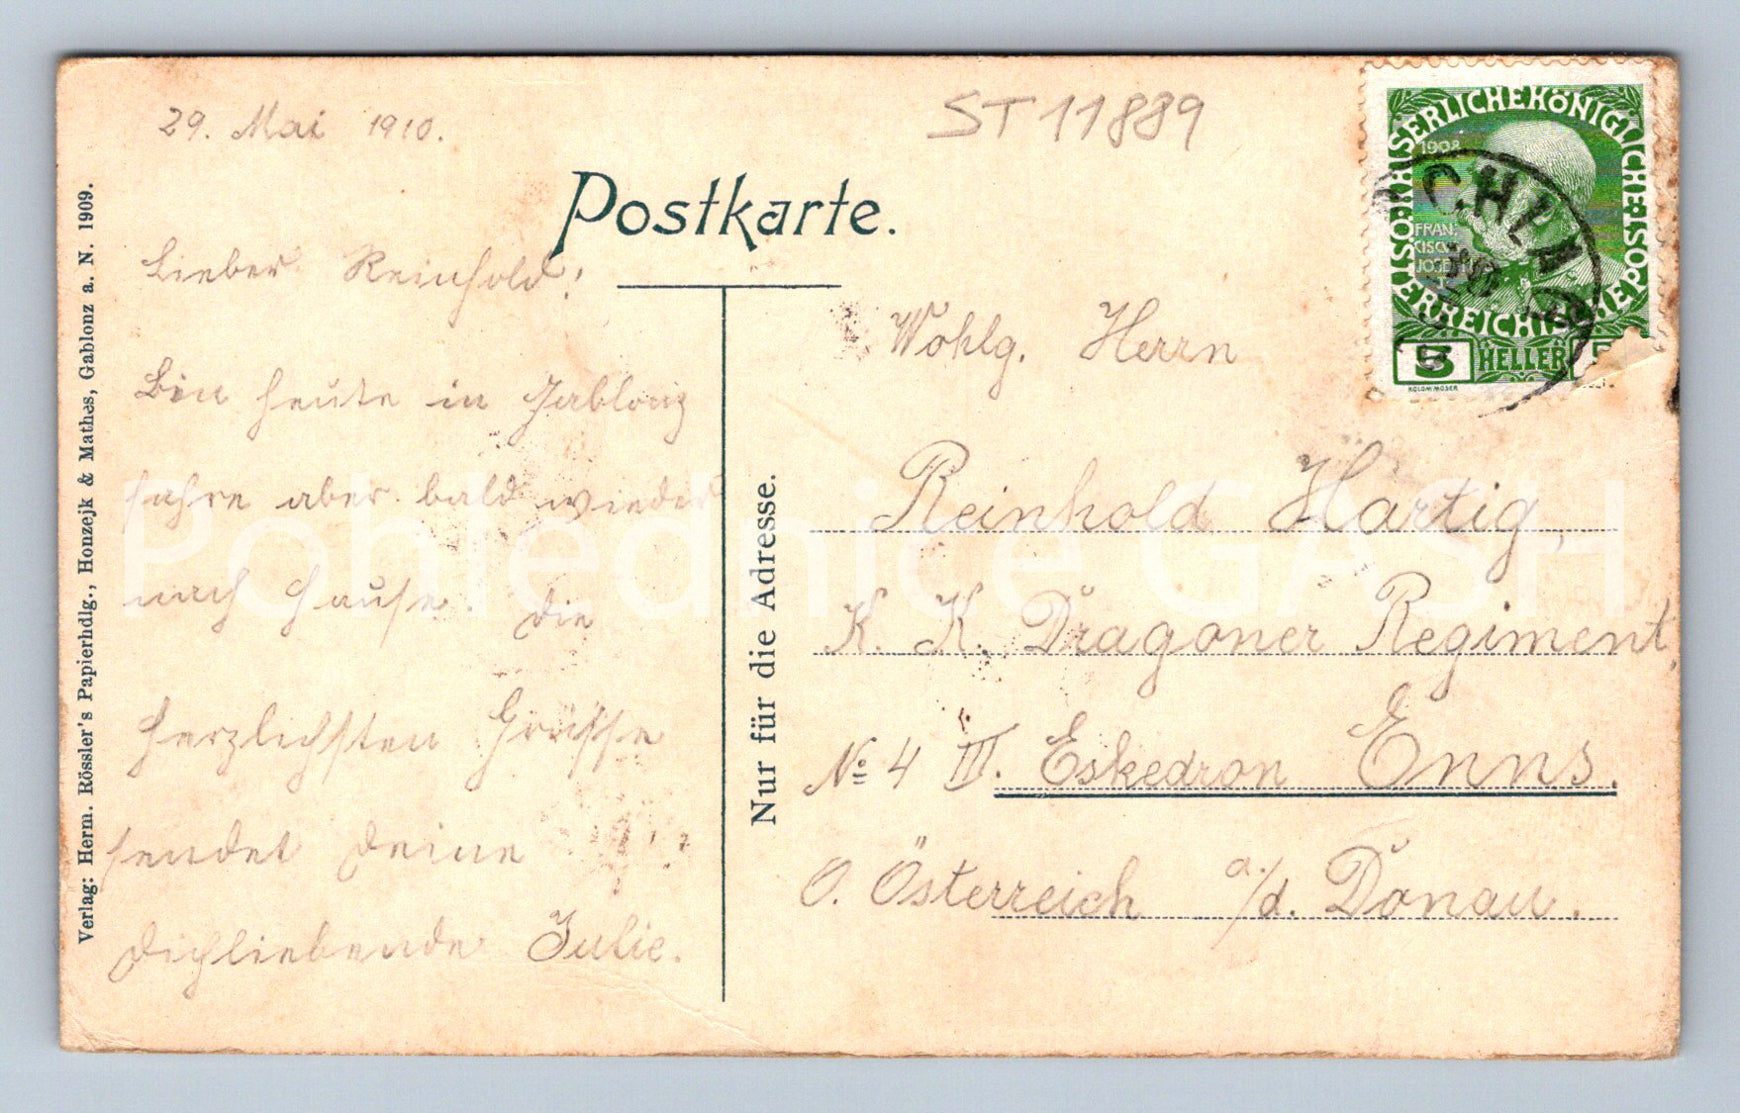 29. Mai 1910.
ST 11889
Postkarte.
Lieber Reinhold!
Bin heute in Gablonz
fahre aber bald wieder
nach Hause. Die
herzlichsten Grüsse
sendet Deine
Dichliebende Julie.
Verlag: Herm. Rössler's Papierhdlg., Honzejk & Mathes, Gablonz a. N. 1909.
Nur für die Adresse.
Wohlg. Herrn
Reinhold Hartig,
K. K. Dragoner Regiment
№ 4 III. Eskedron Enns.
O. Österreich a./d. Donau.
KAISERLICHE KÖNIGLICHE ÖSTERREICHISCHE POST
1908
FRAN
CISCVS
JOSEPH
5 HELLER 5
KOLOM. MOSER
Pohlednice GASH